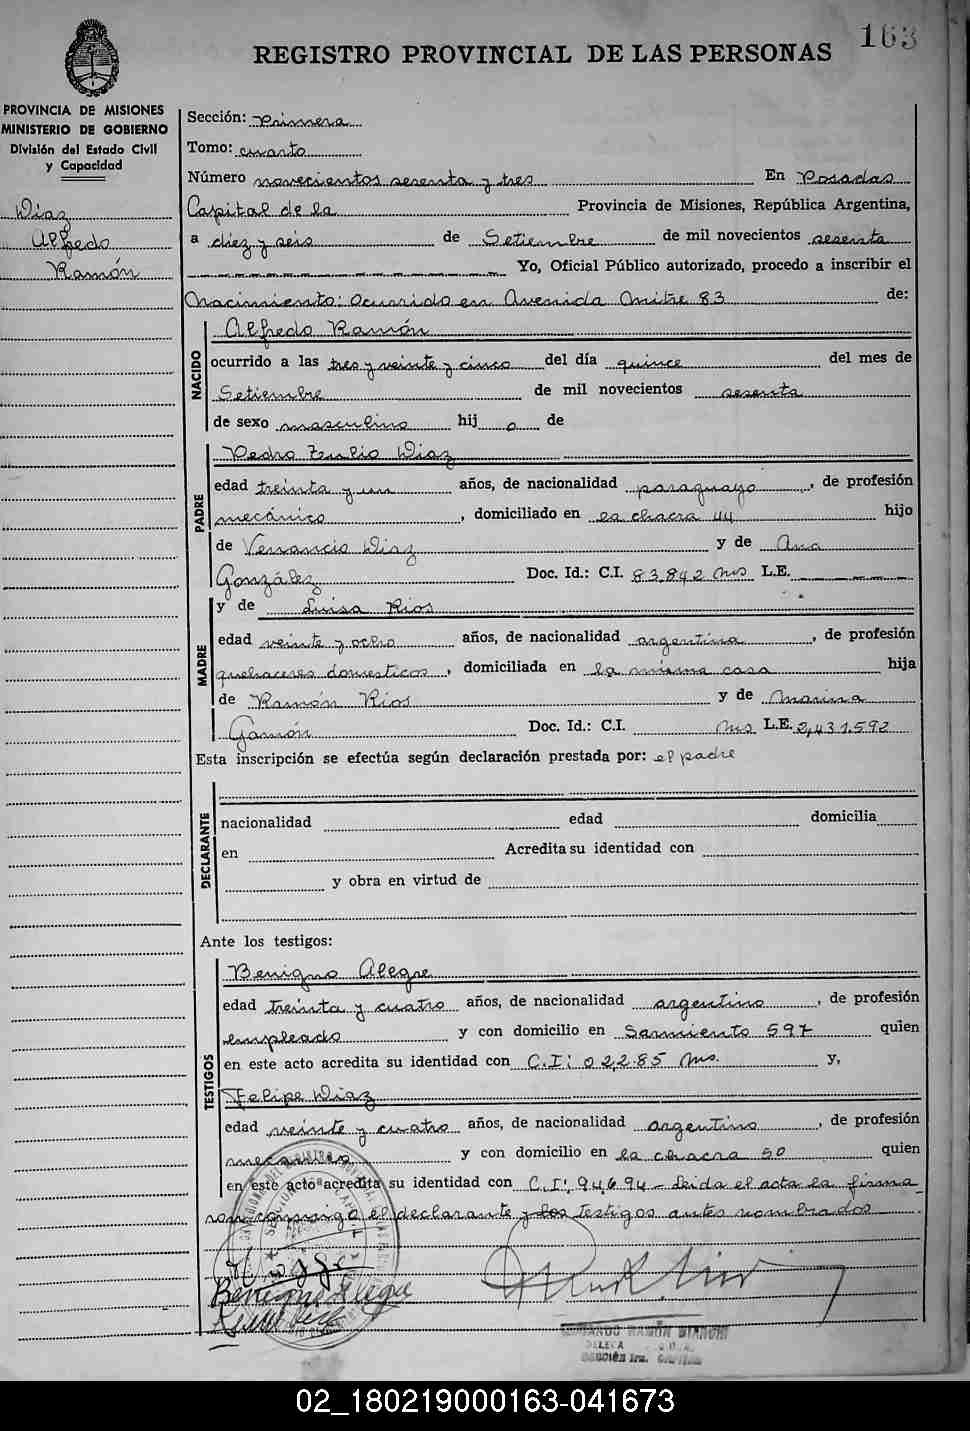 163
REGISTRO PROVINCIAL DE LAS PERSONAS
PROVINCIA DE MISIONES
MINISTERIO DE GOBIERNO
División del Estado Civil
y Capacidad
Diaz
Alfredo
Ramón
Sección: Primera
Tomo: cuarto
Número novecientos sesenta y tres En Posadas
Capital de la Provincia de Misiones, República Argentina,
a diez y seis de Setiembre de mil novecientos sesenta
Yo, Oficial Público autorizado, procedo a inscribir el
Nacimiento: ocurrido en Avenida Mitre 83 de:
NACIDO
Alfredo Ramón
ocurrido a las tres y veinte y cinco del día quince del mes de
Setiembre de mil novecientos sesenta
de sexo masculino hij o de
PADRE
Pedro Tulio Diaz
edad treinta y un años, de nacionalidad paraguayo, de profesión
mecánico, domiciliado en la chacra 44 hijo
de Venancio Diaz y de Ana
González Doc. Id.: C.I. 83.842 Mns L.E.
MADRE
y de Luisa Rios
edad veinte y ocho años, de nacionalidad argentina, de profesión
quehaceres domesticos, domiciliada en la misma casa hija
de Ramón Rios y de Marina
Gamón Doc. Id.: C.I. Mns L.E. 2,431.592
Esta inscripción se efectúa según declaración prestada por: el padre
DECLARANTE
nacionalidad edad domicilia
en Acredita su identidad con
y obra en virtud de
Ante los testigos:
TESTIGOS
Benigno Alegre
edad treinta y cuatro años, de nacionalidad argentino, de profesión
empleado y con domicilio en Sarmiento 597 quien
en este acto acredita su identidad con C.I: 02285 Mns. y,
Felipe Diaz
edad veinte y cuatro años, de nacionalidad argentino, de profesión
mecanico y con domicilio en la chacra 50 quien
en este acto acredita su identidad con C.I: 94694 - Leida el acta la firma
ron conmigo el declarante y los testigos antes nombrados
Benigno Alegre
RAMÓN BIANCHI
SECCIÓN 1ra. CAPITAL
02_180219000163-041673